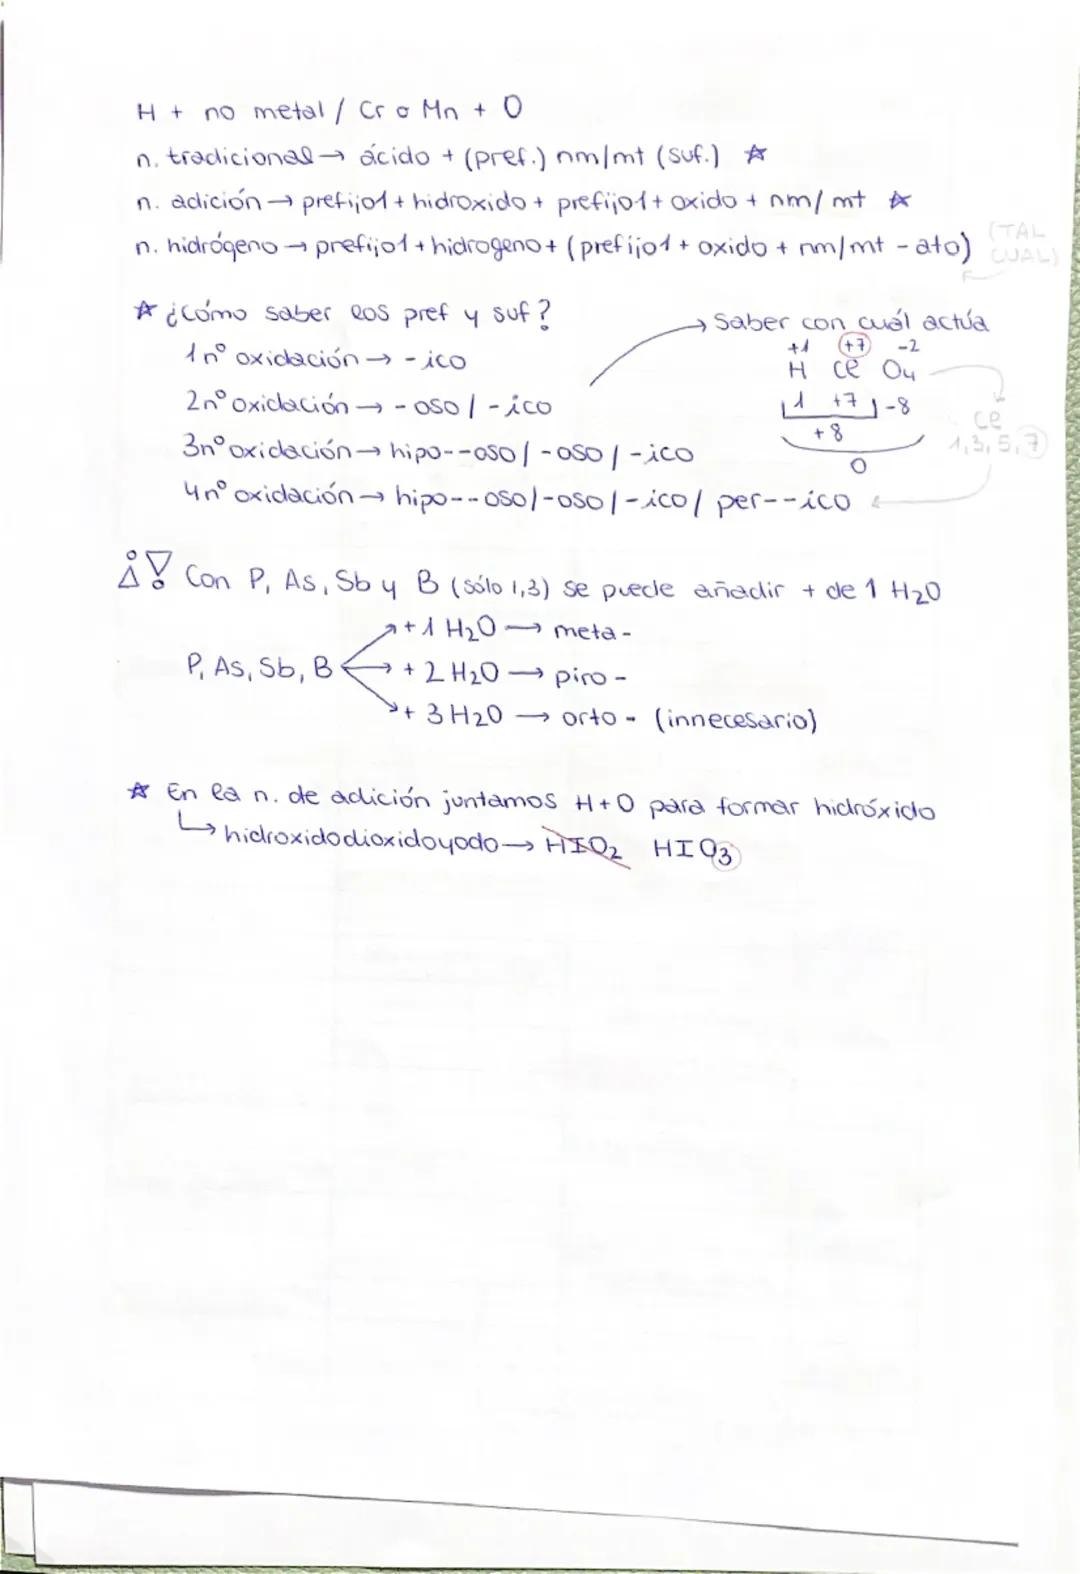 H + no metal / Cr o Mn + O
n. tradicional → ácido + (pref.) nm/mt (suf.) ☆
n. adición → prefijo1 + hidroxido + prefijo1 + oxido + nm/mt ☆
n. hidrógeno → prefijo1 + hidrogeno + (prefijo1 + oxido + nm/mt - ato) (TAL CUAL)
☆ ¿Cómo saber los pref y suf?
1 nº oxidación → - ico
2 nº oxidación → - oso / - ico
3 nº oxidación → hipo--oso / -oso / -ico
4 nº oxidación → hipo--oso/-oso/-ico/ per--ico
→ Saber con cuál actúa
+1 +7 -2
H Cl O4
1 +7 -8
+8
0
Cl
1, 3, 5, 7
¡! Con P, As, Sb y B (sólo 1,3) se puede añadir + de 1 H2O
P, As, Sb, B
→ + 1 H2O → meta -
→ + 2 H2O → piro -
→ + 3 H2O → orto - (innecesario)
☆ En la n. de adición juntamos H+O para formar hidróxido
↳ hidroxidodioxidoyodo → HIO2 HIO3